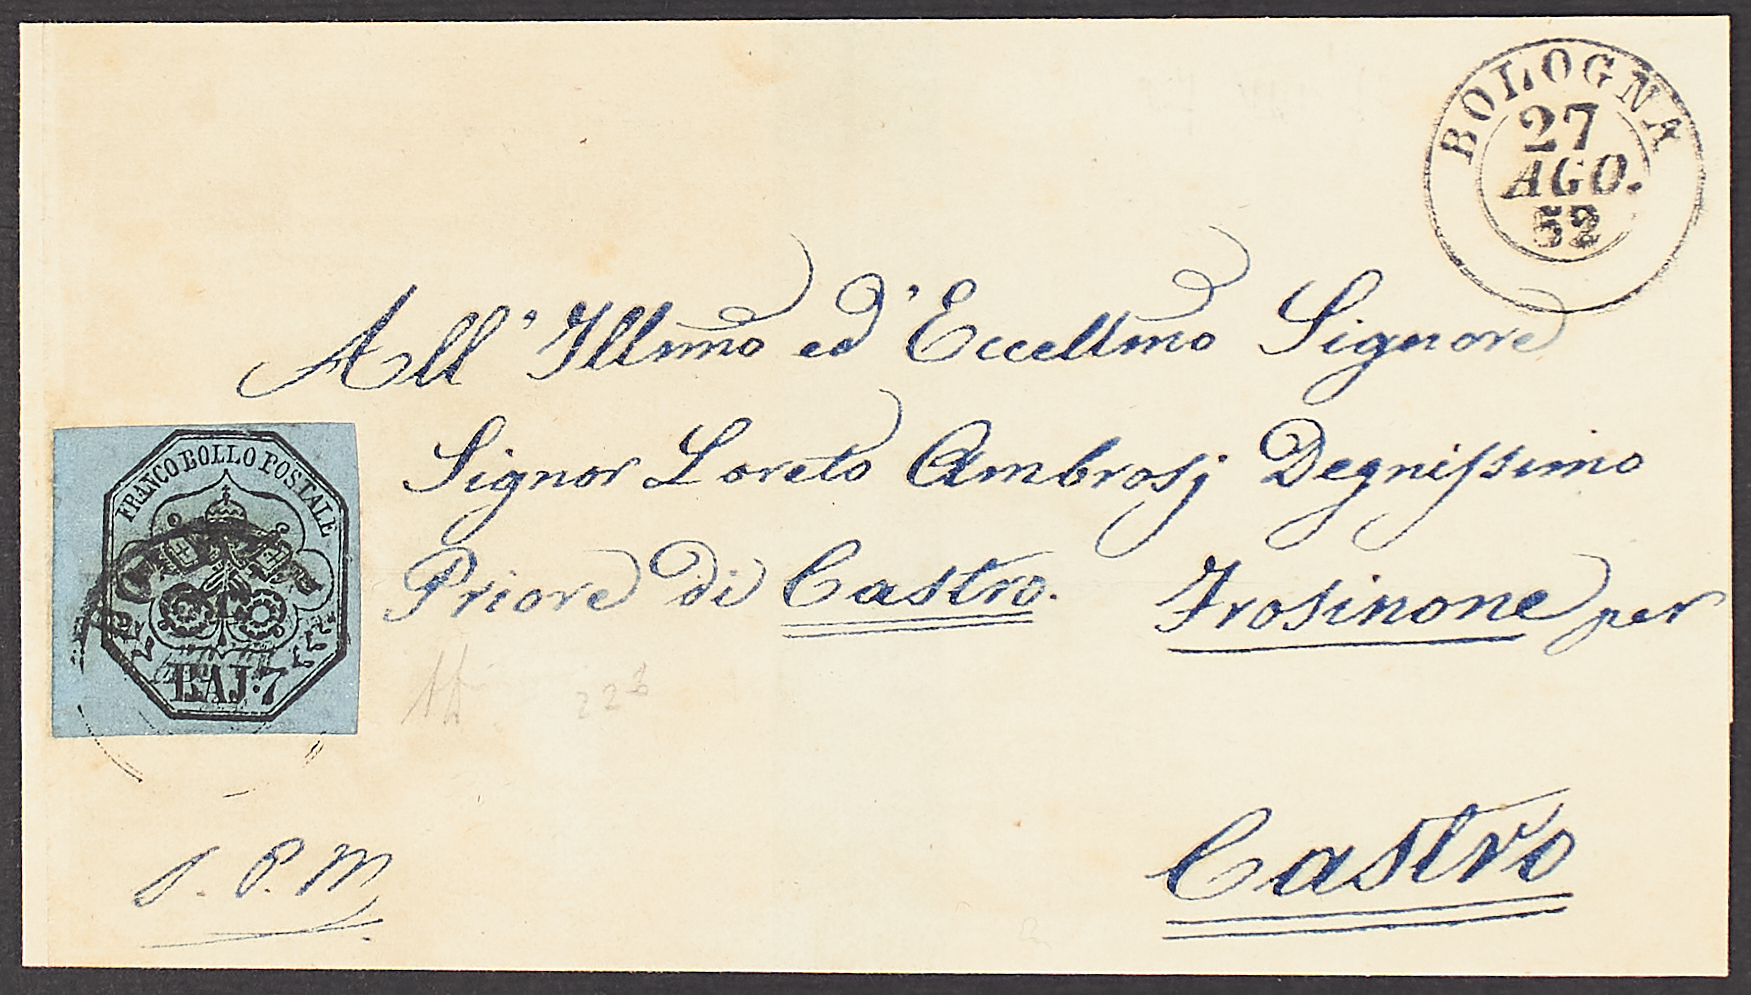 BOLOGNA
27
AGO.
52
All' Illmo ed' Eccellmo Signore
Signor Loreto Ambrosj Degnissimo
Priore di Castro. Frosinone per
FRANCO BOLLO POSTALE
BAJ. 7
226
S. P. M
Castro